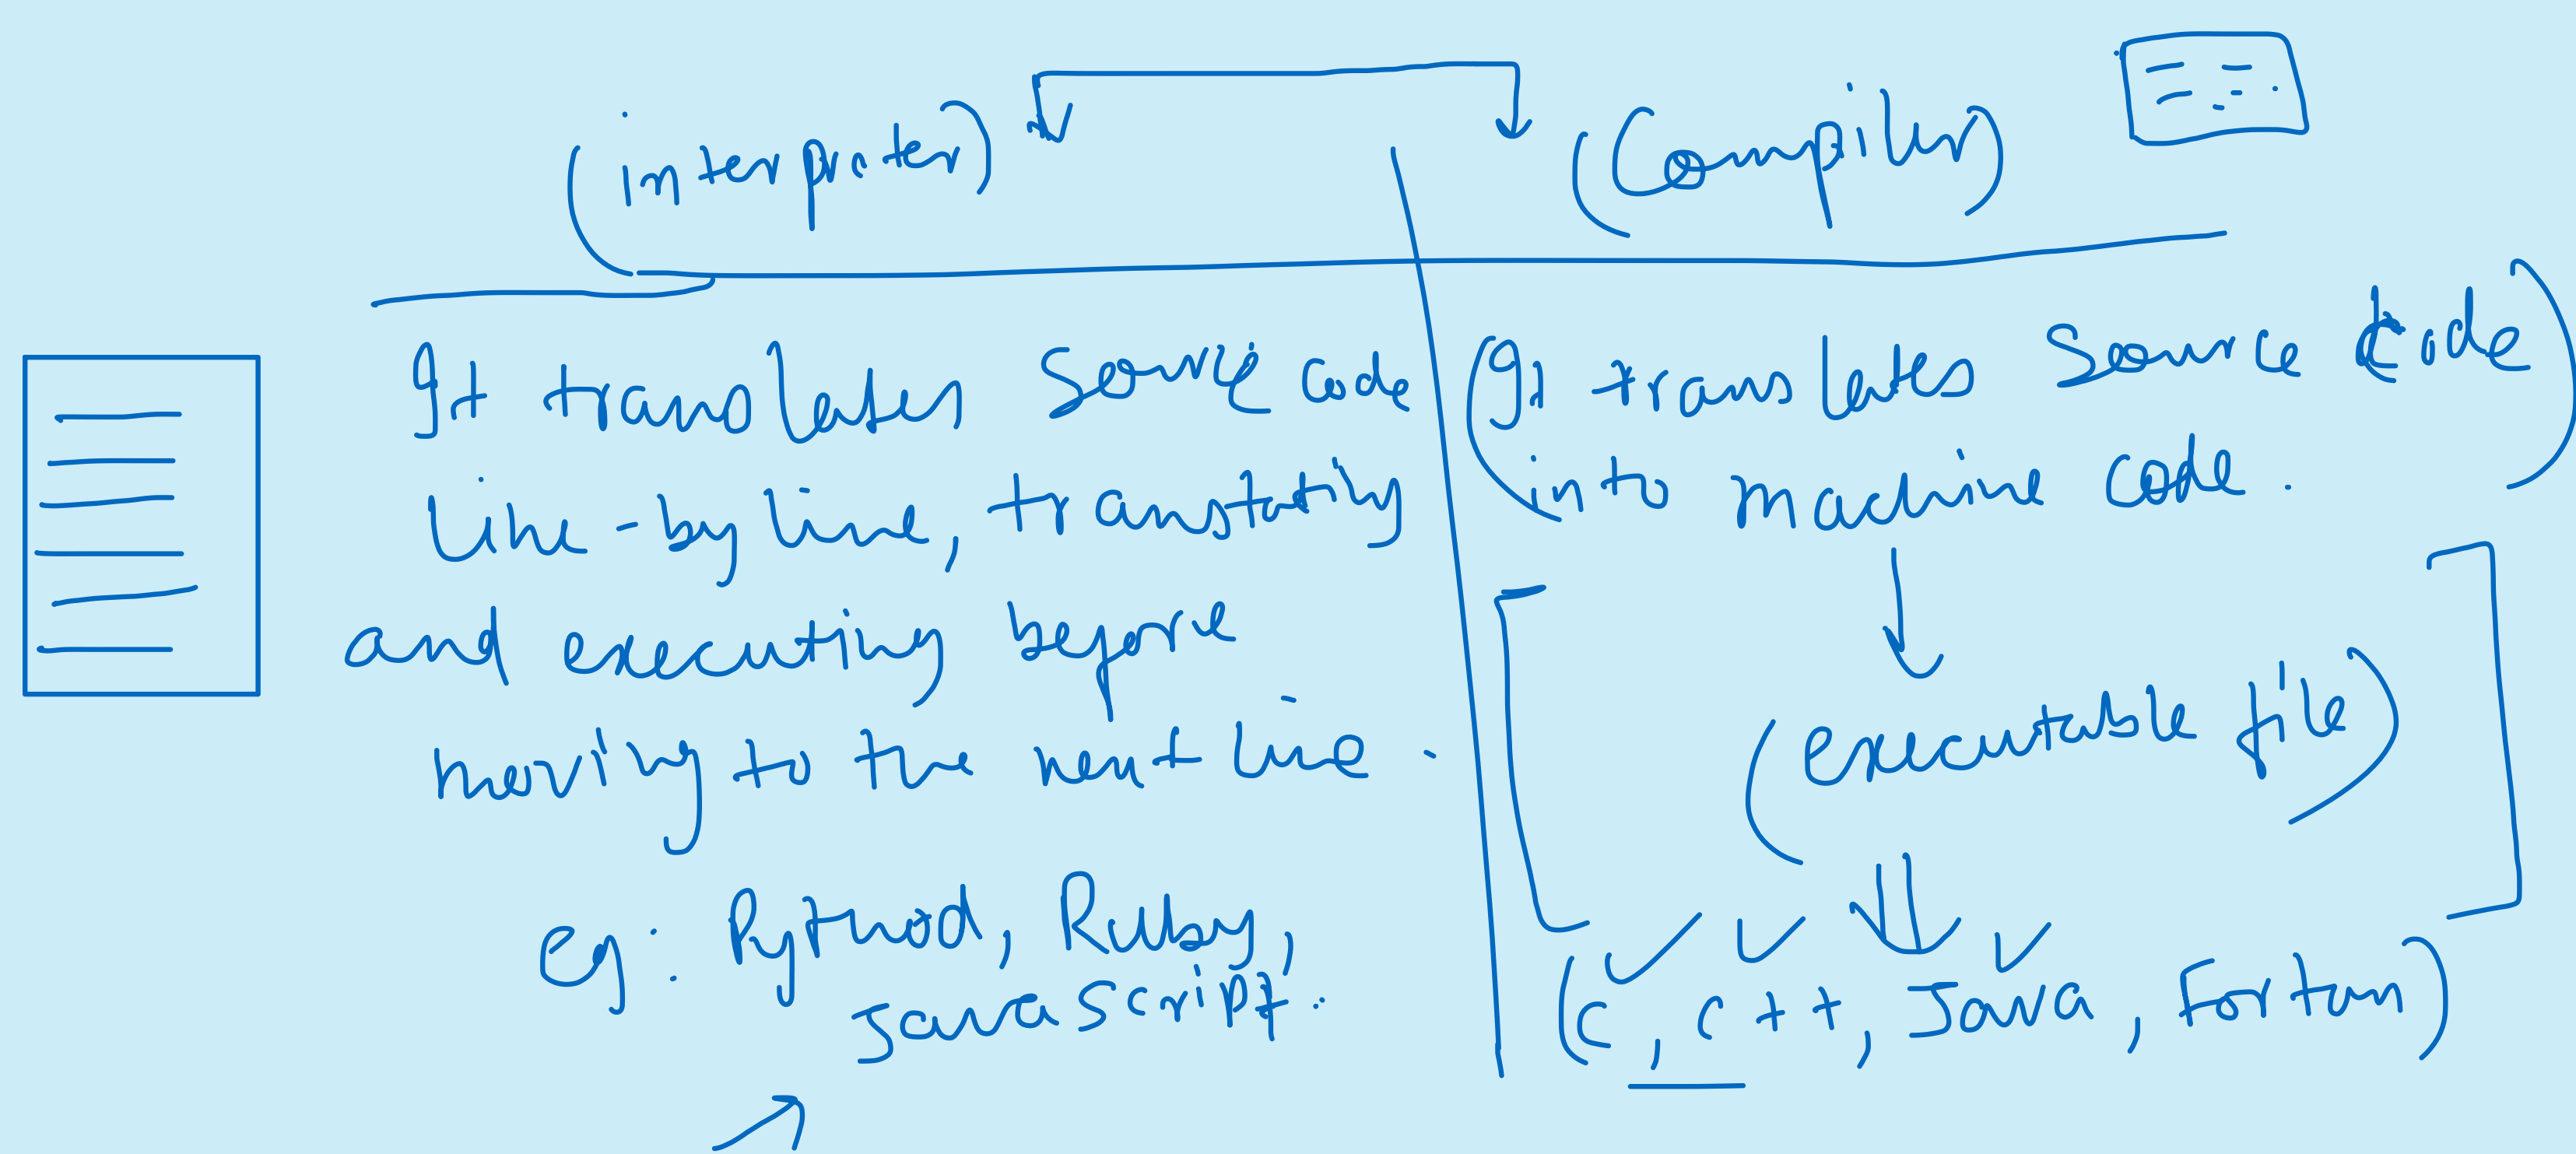 (interpreter)
(Compiler)
It translates source code
line-by line, translating
and executing before
moving to the next line.
eg: Python, Ruby,
JavaScript.
(It translates source code)
into machine code.
(executable file)
(C, C++, Java, Fortran)